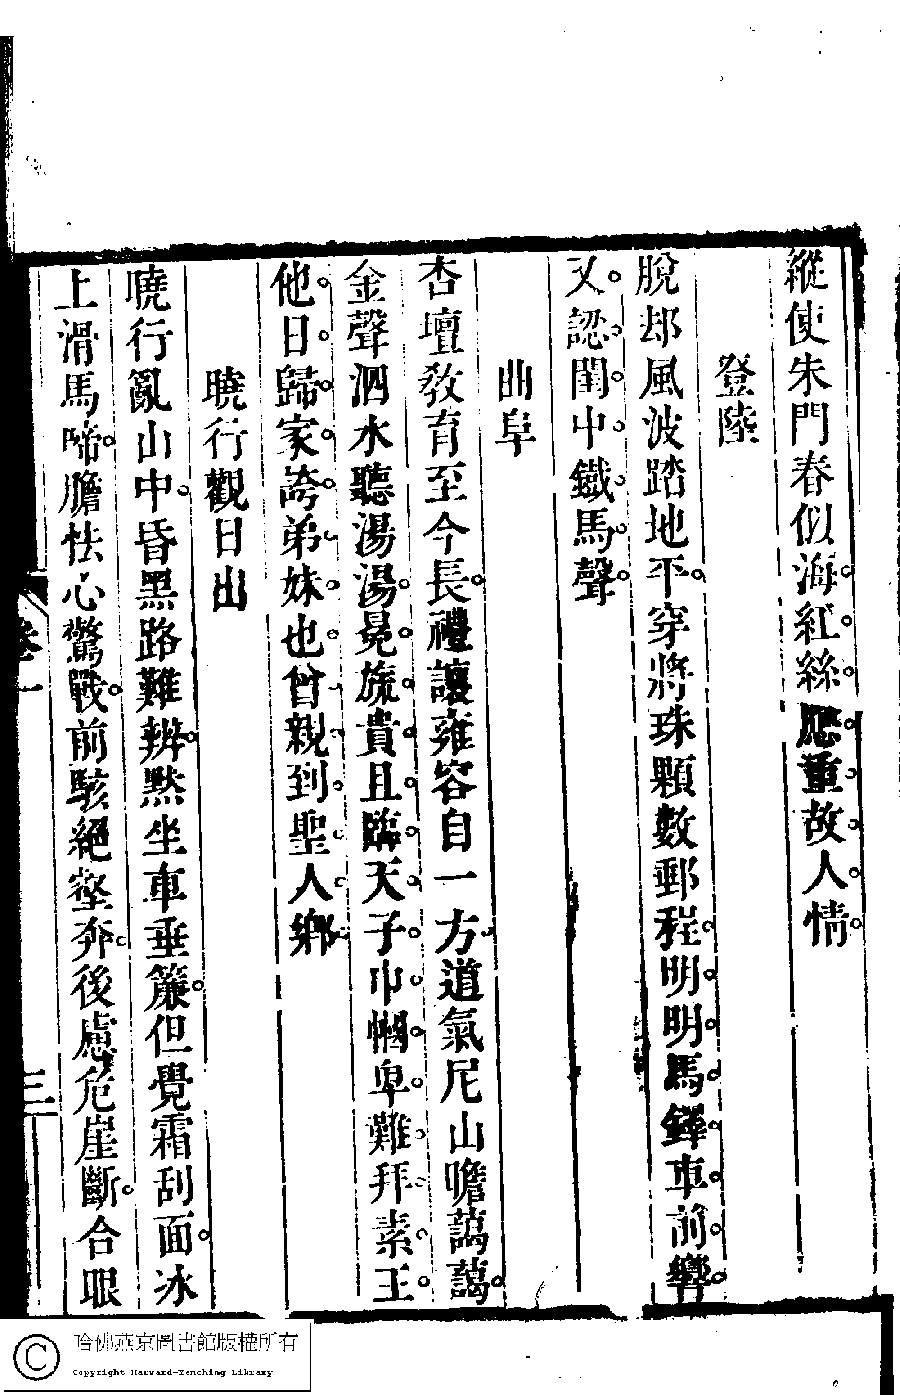 縱使朱門春似海。紅。絲。應。重。故。人。情。
登陸
脫却風波踏地平。穿將珠顆數郵程。明。明。馬。鐸。車。前。響。
又。認。閨。中。鐵。馬。聲。
曲阜
杏壇教育至今長。禮讓雍容自一方。道氣尼山瞻藹藹。
金聲泗水聽湯湯。冕。旒。貴。且。臨。天。子。巾。幗。卑。難。拜。素。王。
他。日。歸。家。誇。弟。妹。也。曾。親。到。聖。人。鄉。
曉行觀日出
曉行亂山中。昏黑路難辨。默坐車垂簾。但覺霜刮面。冰
上滑馬啼。膽怯心驚戰。前駭絕壑奔。後慮危崖斷。合眼
卷一
三
哈佛燕京圖書館版權所有
Copyright Harvard-Yenching Library